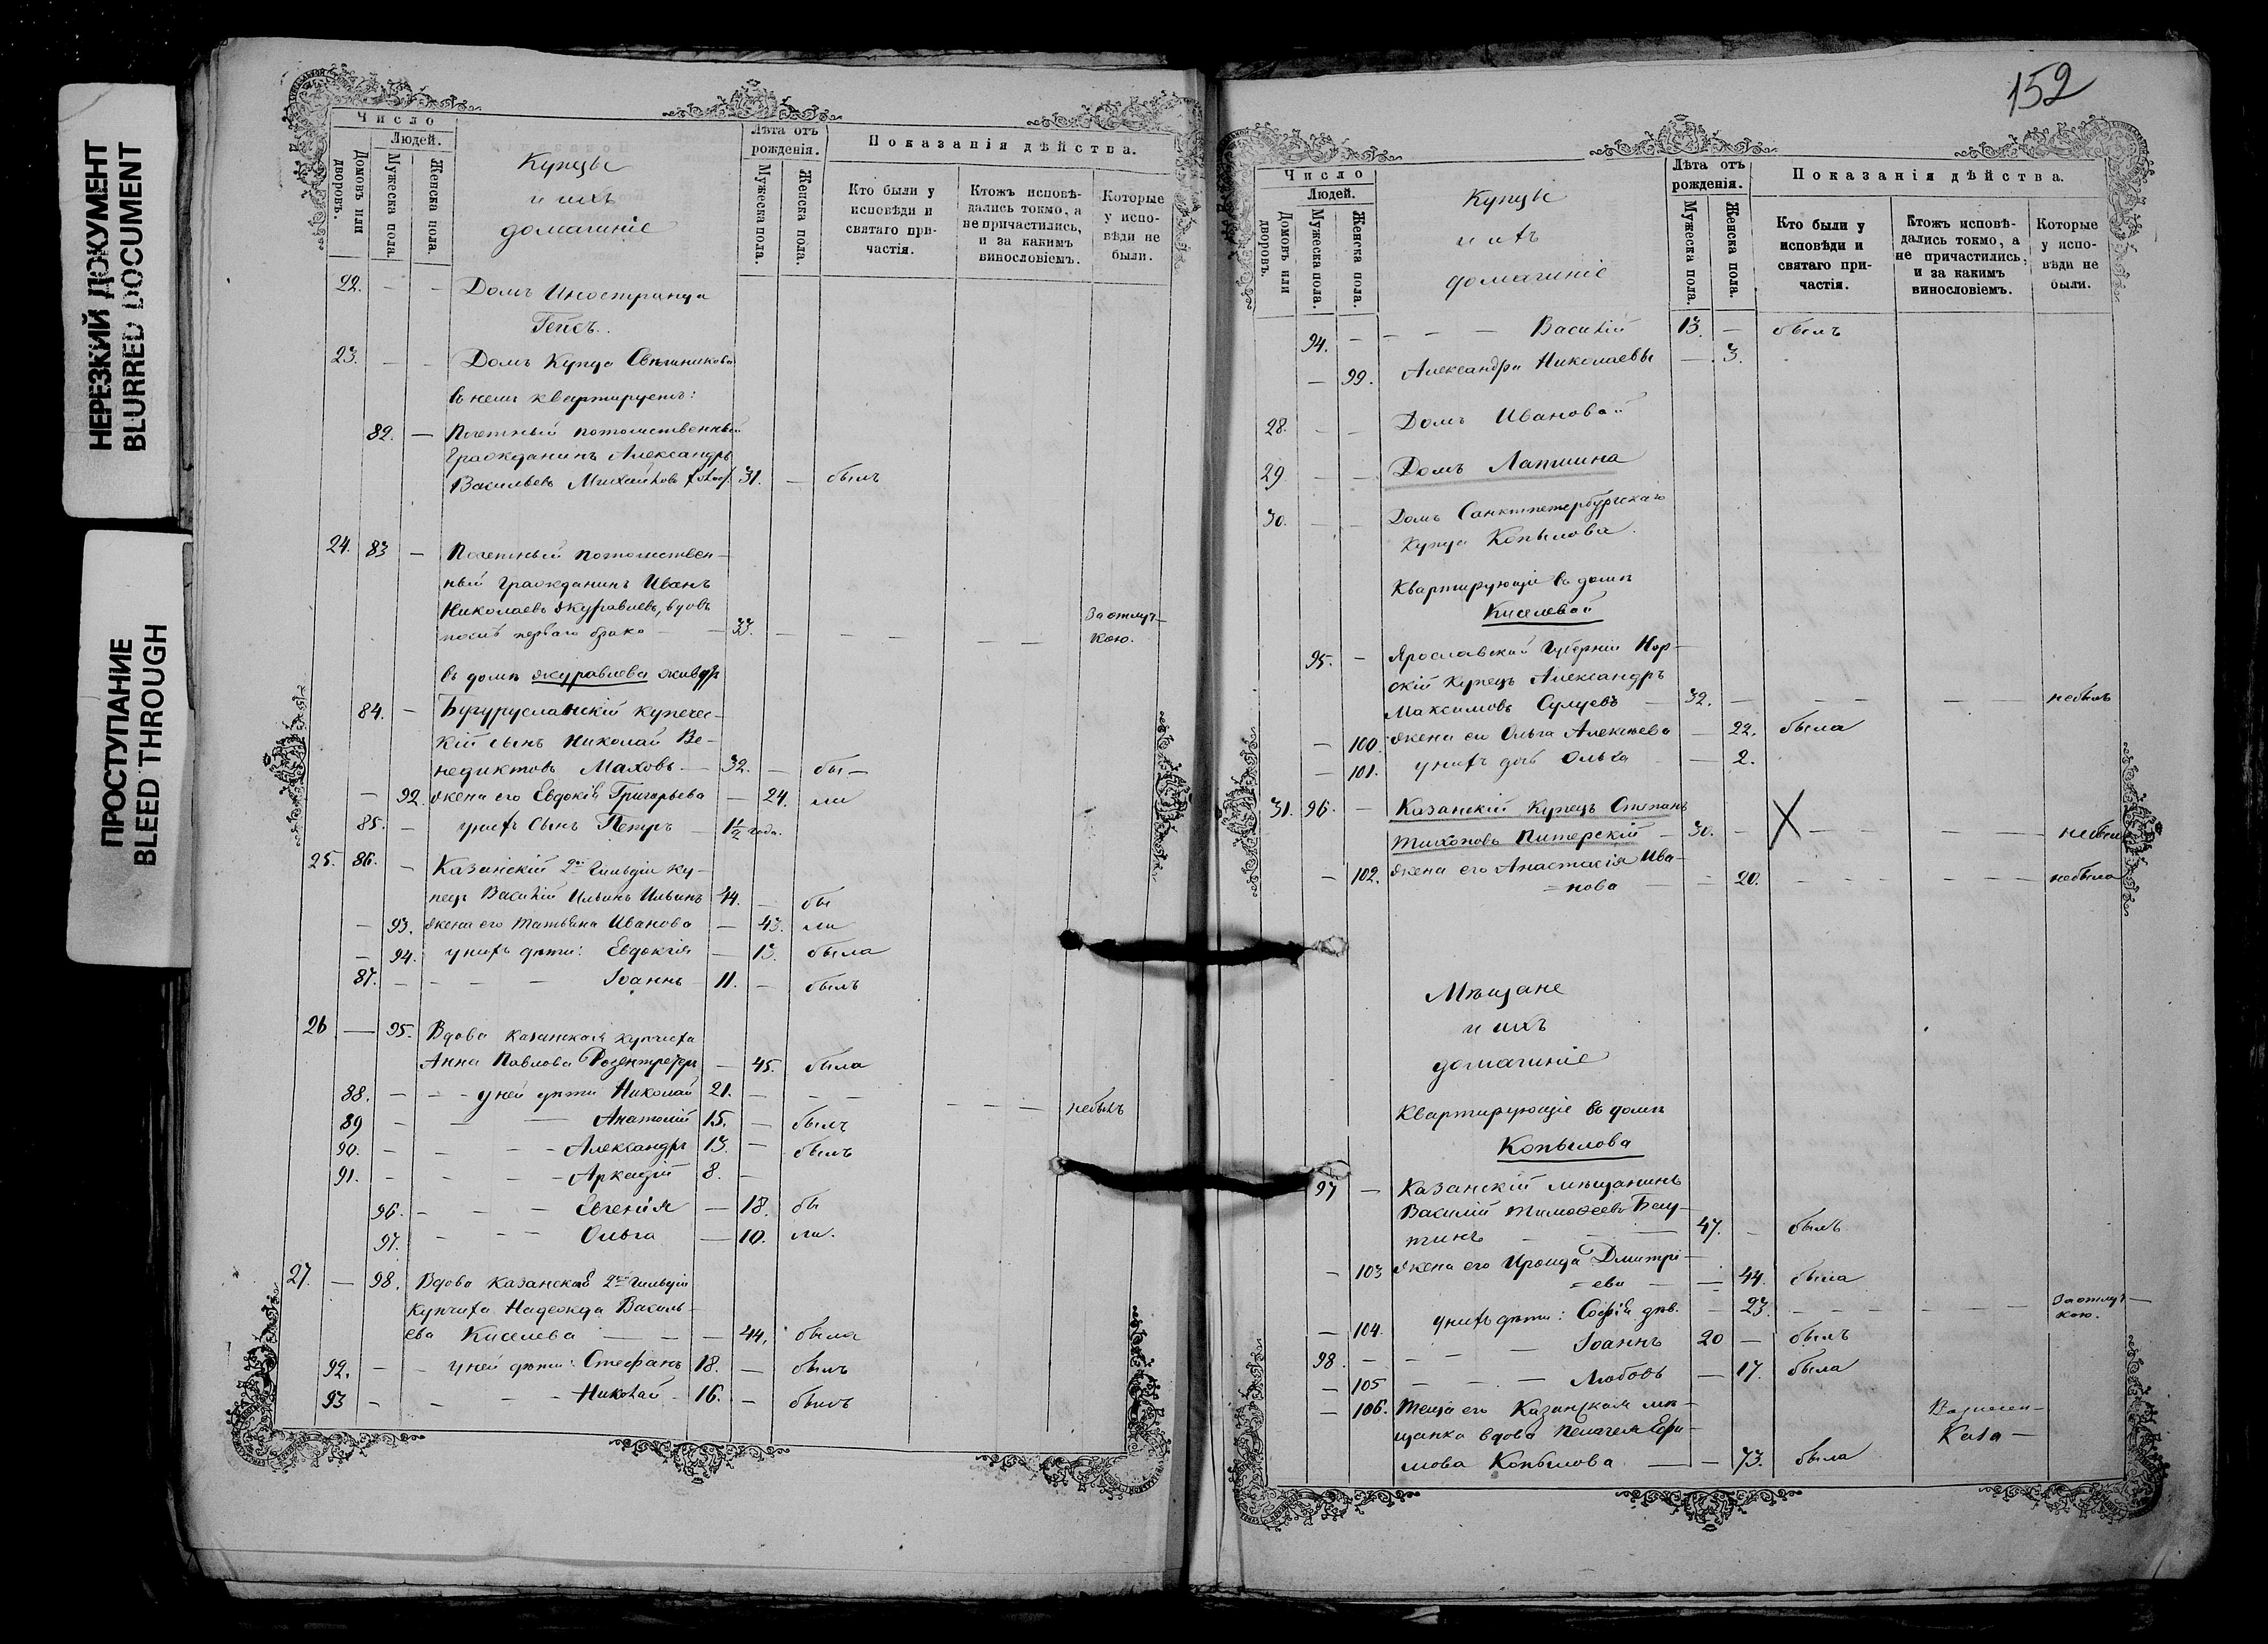 НЕРЕЗКИЙ ДОКУМЕНТ
BLURRED DOCUMENT
ПРОСТУПАНИЕ
BLEED THROUGH
Число
Людей.
Домовъ или дворовъ.
Мужеска пола.
Женска пола.
Купцы
и ихъ
домашніе
Лѣта отъ рожденія.
Мужеска пола.
Женска пола.
Показанія дѣйства.
Кто были у исповѣди и святаго при-частія.
Ктожъ исповѣ-дались токмо, а не причастились, и за какимъ винословіемъ.
Которые у испо-вѣди не были.
22. — — Домъ Иностранца
Гейсъ.
23. — — Домъ Купца Свѣшникова
въ немъ квартируетъ:
82. — Почетный потомственный
Гражданинъ Александръ
Васильевъ 31. — былъ
24. 83 — Почетный потомствен-
ный гражданинъ Иванъ
Николаевъ Журавлевъ, вдовъ
послѣ перваго брака — 33. — — — — — За отлуч-
кою.
въ домѣ Журавлева живутъ
84. — Бугурусланскій купечес-
кій сынъ Николай Ве-
недиктовъ Маховъ — 32. — бы —
— 92. жена его Евдокія Григорьева — 24. ли
85. — у нихъ сынъ Петръ — 1½ года.
25. 86. — Казанскій 2й гильдіи ку-
пецъ Василій Ильинъ Ильинъ 44. — бы
— 93. жена его Татьяна Иванова — 43. ли
— 94. у нихъ дѣти: Евдокія — 13. была
87. — — — — Іоаннъ 11. — былъ
26 — 95. Вдова Казанская купчиха
Анна Павлова — 45. была
88. — — у ней дѣти Николай 21. — — — — — — небылъ
89 — — Анатолій 15. — былъ
90. — — — — Александръ 13. — былъ
91. — — — — Аркадій 8. —
96. — — — Евгенія — 18. бы
97. — — — Ольга — 10. ли.
27. — 98. Вдова Казанской 2й гильдіи
купчиха Надежда Василь-
ева Киселева — — — 44. была
92. — — у ней дѣти: Стефанъ 18. — былъ
93 — — — — Николай — 16. — былъ
152
Число
Людей.
Домовъ или дворовъ.
Мужеска пола.
Женска пола.
Купцы
и ихъ
домашніе
Лѣта отъ рожденія.
Мужеска пола.
Женска пола.
Показанія дѣйства.
Кто были у исповѣди и святаго при-частія.
Ктожъ исповѣ-дались токмо, а не причастились, и за какимъ винословіемъ.
Которые у испо-вѣди не были.
94. — — — Василій 13. — былъ
— 99. Александра Николаевы — 3.
28. — — Домъ Ивановой
29 — — Домъ Лапшина
30. — — Домъ Санктпетербургскаго
купца Копылова.
Квартирующіе въ домѣ
Киселевой
95. — Ярославской Губерніи Нор-
скій Купецъ Александръ
Максимовъ — 32. — — — — небылъ
— 100. жена его Ольга Алексѣева — 22. была
— 101. у нихъ дочь Ольга — 2.
31. 96. — Казанскій Купецъ Степанъ
Тихоновъ Питерскій — 30. — — — — — небылъ
— 102. жена его Анастасія Ива-
=нова — — 20. — — — — — — небыла
Мѣщане
и ихъ
домашніе
Квартирующіе въ домѣ
Копылова
97 — Казанскій мѣщанинъ
Василій Тимоѳеевъ
47. — былъ
— 103 жена его Ироида Дмитрі-
=ева — — 44. была
— 104. у нихъ дѣти: Софія дѣв. — 23. — — — — — За отлуч-
кою.
98. — — — — Іоаннъ 20 — былъ
— 105 — — — Любовь — 17. была
— 106. Теща его Казанская мѣ-
щанка вдова Пелагея Ефи-
мова Копылова — — 73. была